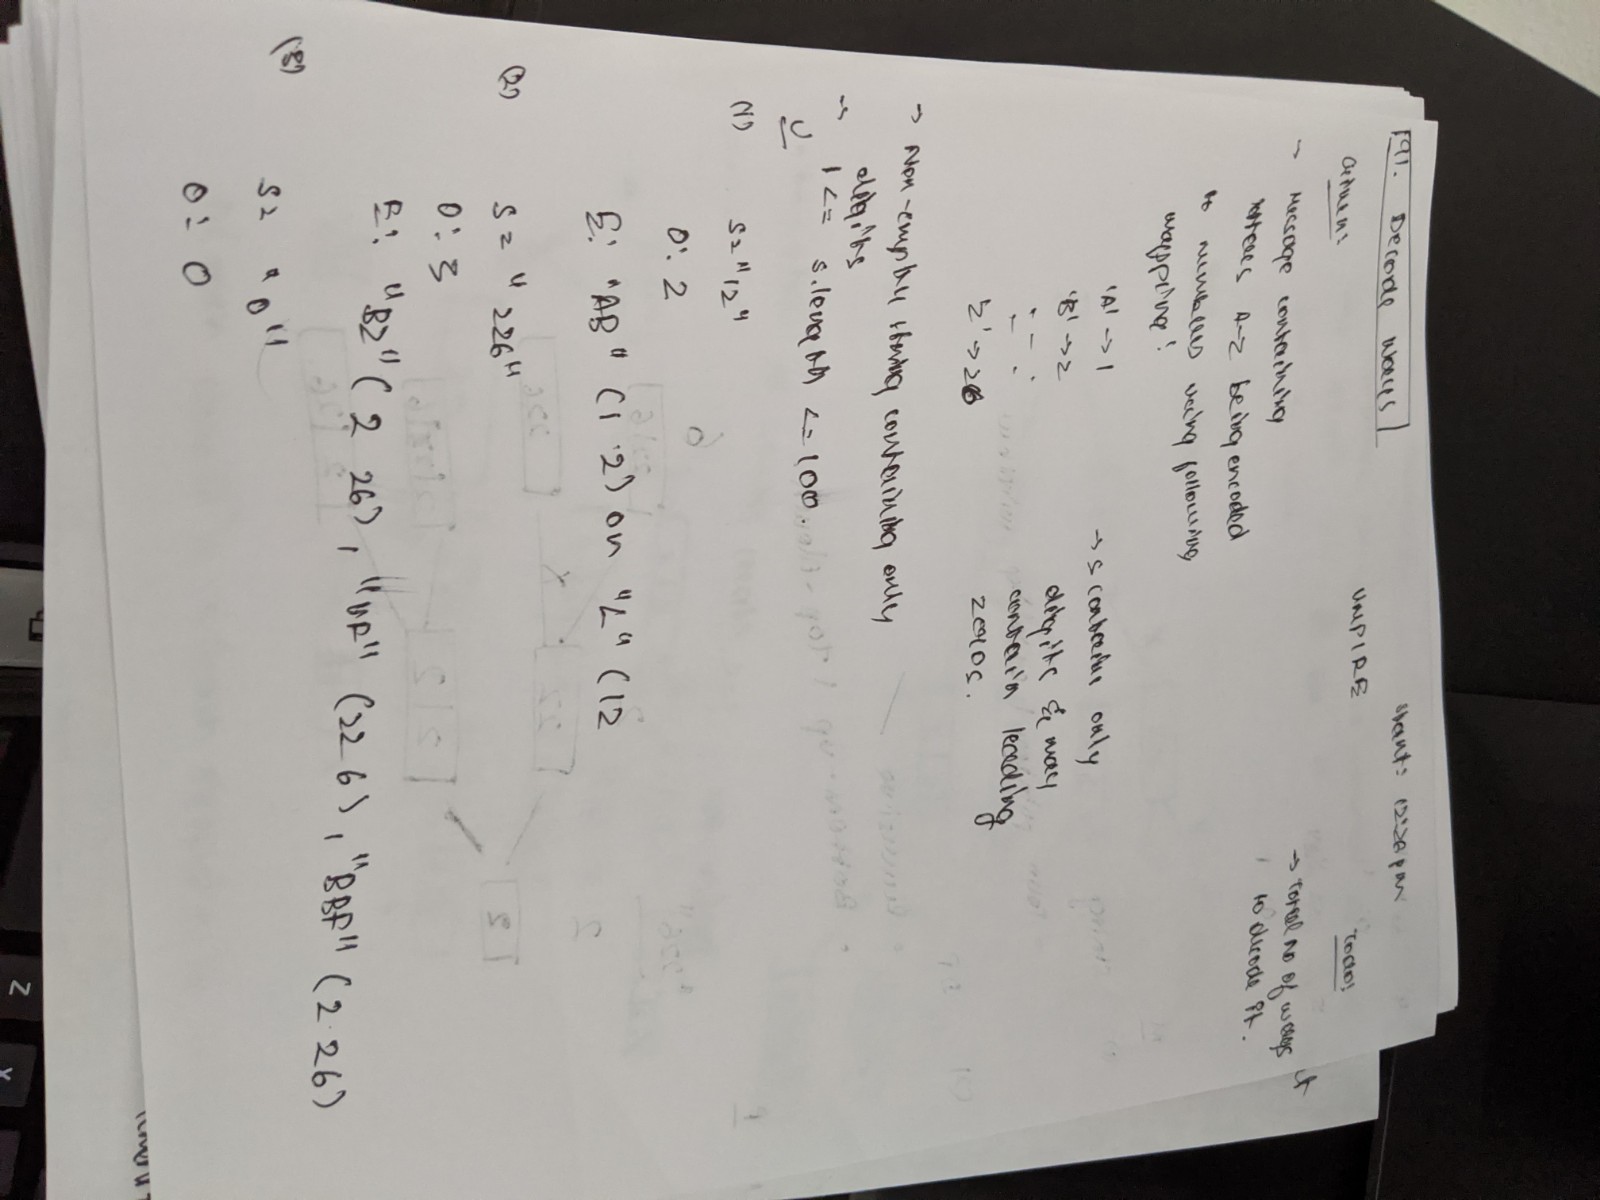 91. Decode Ways
UMPIRE
Start: 12:22pm
Given:
TODO:
→ Message containing
letters A-Z being encoded
to numbers using following
mapping:
→ total no of ways
to decode it.
'A' → 1
'B' → 2
'Z' → 26
→ s contains only
digits & may
contain leading
zeros.
→ Non-empty string containing only
digits
→ 1 <= s.length <= 100.
U
(1) s = "12"
O: 2
E: "AB" (1 2) or "L" (12
(2) s = "226"
O: 3
E: "BZ" (2 26), "VF" (22 6), "BBF" (2 26)
(3) s = "0"
O: 0